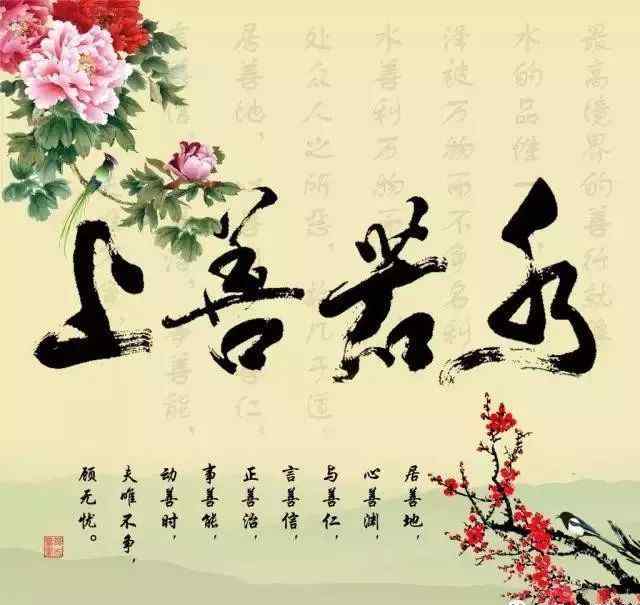 上善若水
居善地，
心善渊，
与善仁，
言善信，
正善治，
事善能，
动善时，
夫唯不争，
顾无忧。
最高境界的善行就
水的品
泽被万物而不争名利
水善利万物而
处众人之所恶，故几于道。
居善地，
仁。
善能，